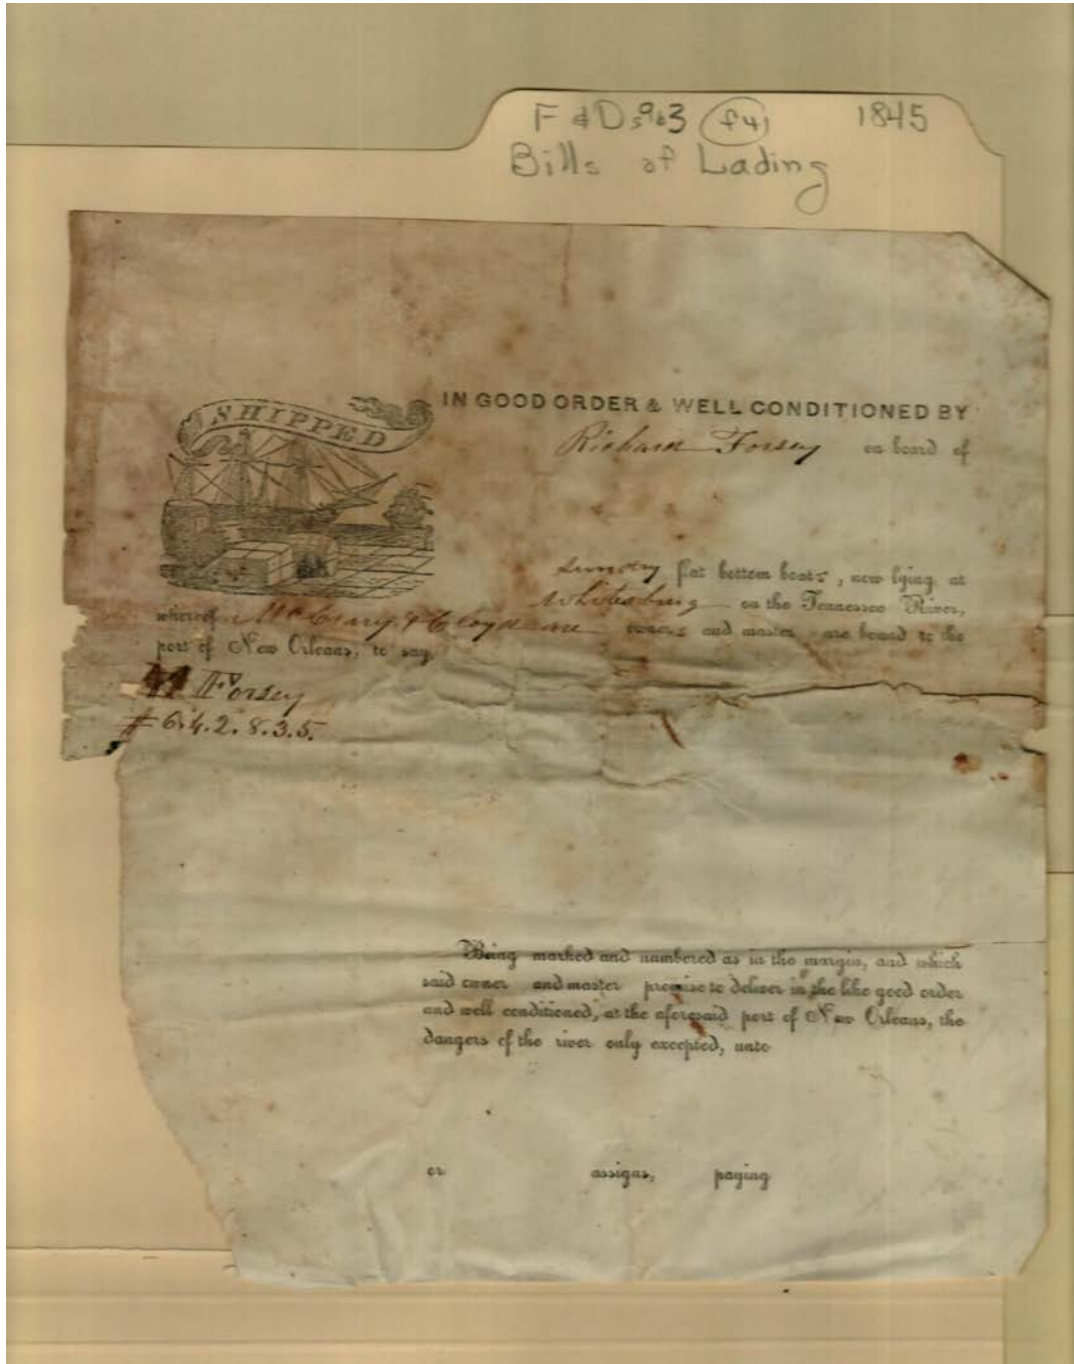 F & D, 9b3 (f4) 1845
Bills of Lading
SHIPPED
IN GOOD ORDER & WELL CONDITIONED BY
Richard Forsey on board of
Sundry flat bottom boats, now lying at
Whitesburg on the Tennessee River,
whereof McCrary & Cloyd are owners and master are bound to the
port of New Orleans, to say
Forsey
# 6.4.2.8.3.5.
Being marked and numbered as in the margin, and which
said owner and master promise to deliver in the like good order
and well conditioned, at the aforesaid port of New Orleans, the
dangers of the river only excepted, unto
or assigns, paying